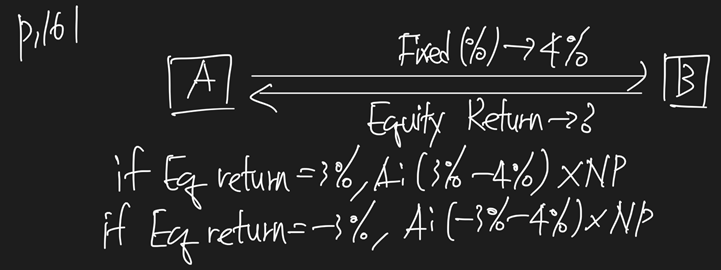 p.161
Fixed(%)→4%
A B
Equity Return→?
if Eq return=3%, A: (3%-4%)×NP
if Eq return=-3%, A: (-3%-4%)×NP